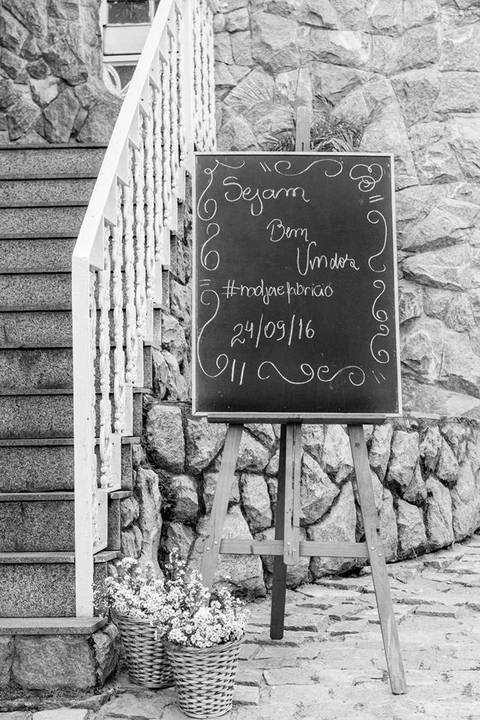 Sejam
Bem
Vindos
#nadjaefabricio
24/09/16